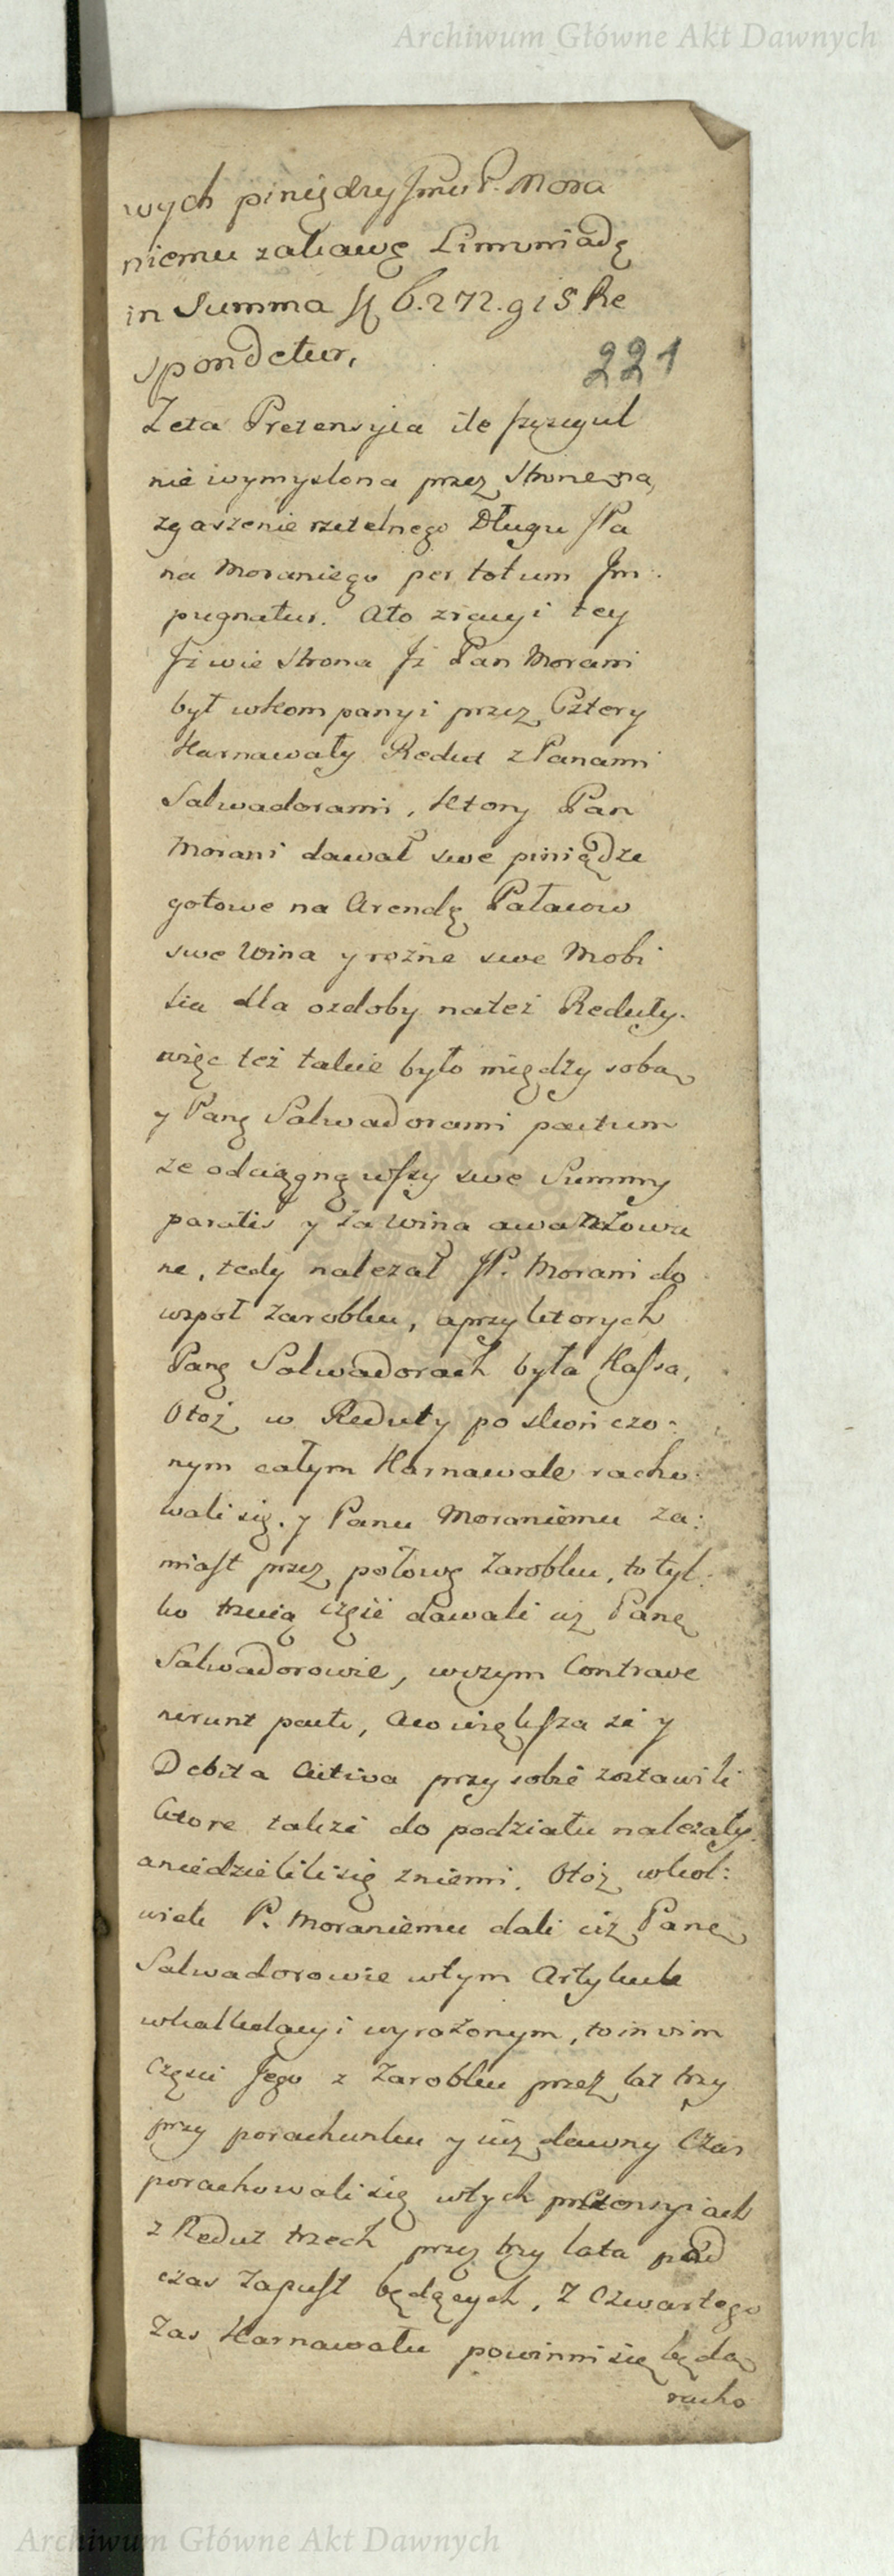 Archiwum Główne Akt Dawnych
wych piniędzy Jmu P. Mora
niemu zabawę Limuniadę
in Summa 6.272.g 15 Re
spondetur,
221
Zeta Pretensyia ile szczegul
nie wymyslona przez Strone na
zgaszenie rzetelnego Długu JPa
na Moraniego per totum Im
pugnatur. Ato zracyi tey
Jż wie Strona Jż Pan Morani
był wkompanyi przez Cztery
Karnawały Redut z Panami
Salwadorami, Ktory Pan
Morani dawał swe piniądze
gotowe na Arendę Pałacow
swe Wina y rożne swe Mobi
lia dla ozdoby nateż Reduty.
więc też takie było między sobą
y Panę Salwadorami pactum
ze odciągną wszy swe Summy
paratis y za wina awanżowa
ne, tedy należał JP. Morani do
wspoł Zarobku, aprzyktorych
Panę Salwadorach była Kassa,
Otoż w Reduty po skończo-
nym całym Karnawale racho
wali się. y Panu Moraniemu za:
miast przez połowę Zarobku, to tyl
ko trzecią część dawali ciż Panę
Salwadorowie, wczym Contrave
nerunt pacta, Aco większa że y
Debita Activa przy sobie zostawili
Ktore także do podziału należały.
aniedzielili się zniemi. Otoż wkol:
wiek P. Moraniemu dali ciż Panę
Salwadorowie wtym Artykule
wkalkulacyi wyrażonym, to in vim
Części Jego z Zarobku przez lat trzy
przy porachunku y iuż dawny Czas
porachowali się wtych pretensyiach
z Redut trzech przez trzy lata pod
czas Zapust będących, Z Czwartego
Zas Karnawału powinni się będą
racho
Archiwum Główne Akt Dawnych